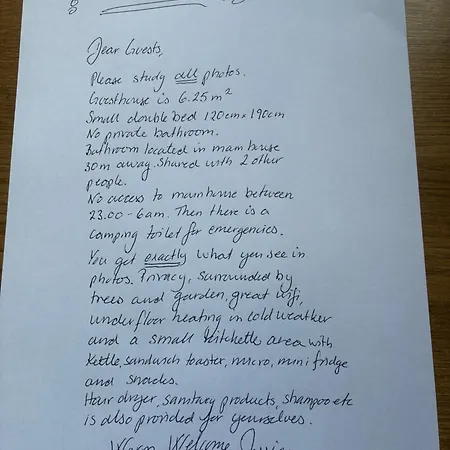 Dear Guests,
Please study all photos.
Guesthouse is 6.25 m²
Small double bed 120cm x 190cm
No private bathroom.
Bathroom located in main house
30m away. Shared with 2 other
people.
No access to mainhouse between
23.00 - 6am. Then there is a
camping toilet for emergencies.
You get exactly what you see in
photos. Privacy, surrounded by
trees and garden, great wifi,
underfloor heating in cold weather
and a small kitchette area with
kettle, sandwich toaster, micro, mini fridge
and snacks.
Hair dryer, sanitary products, shampoo etc
is also provided for yourselves.
Warm Welcome